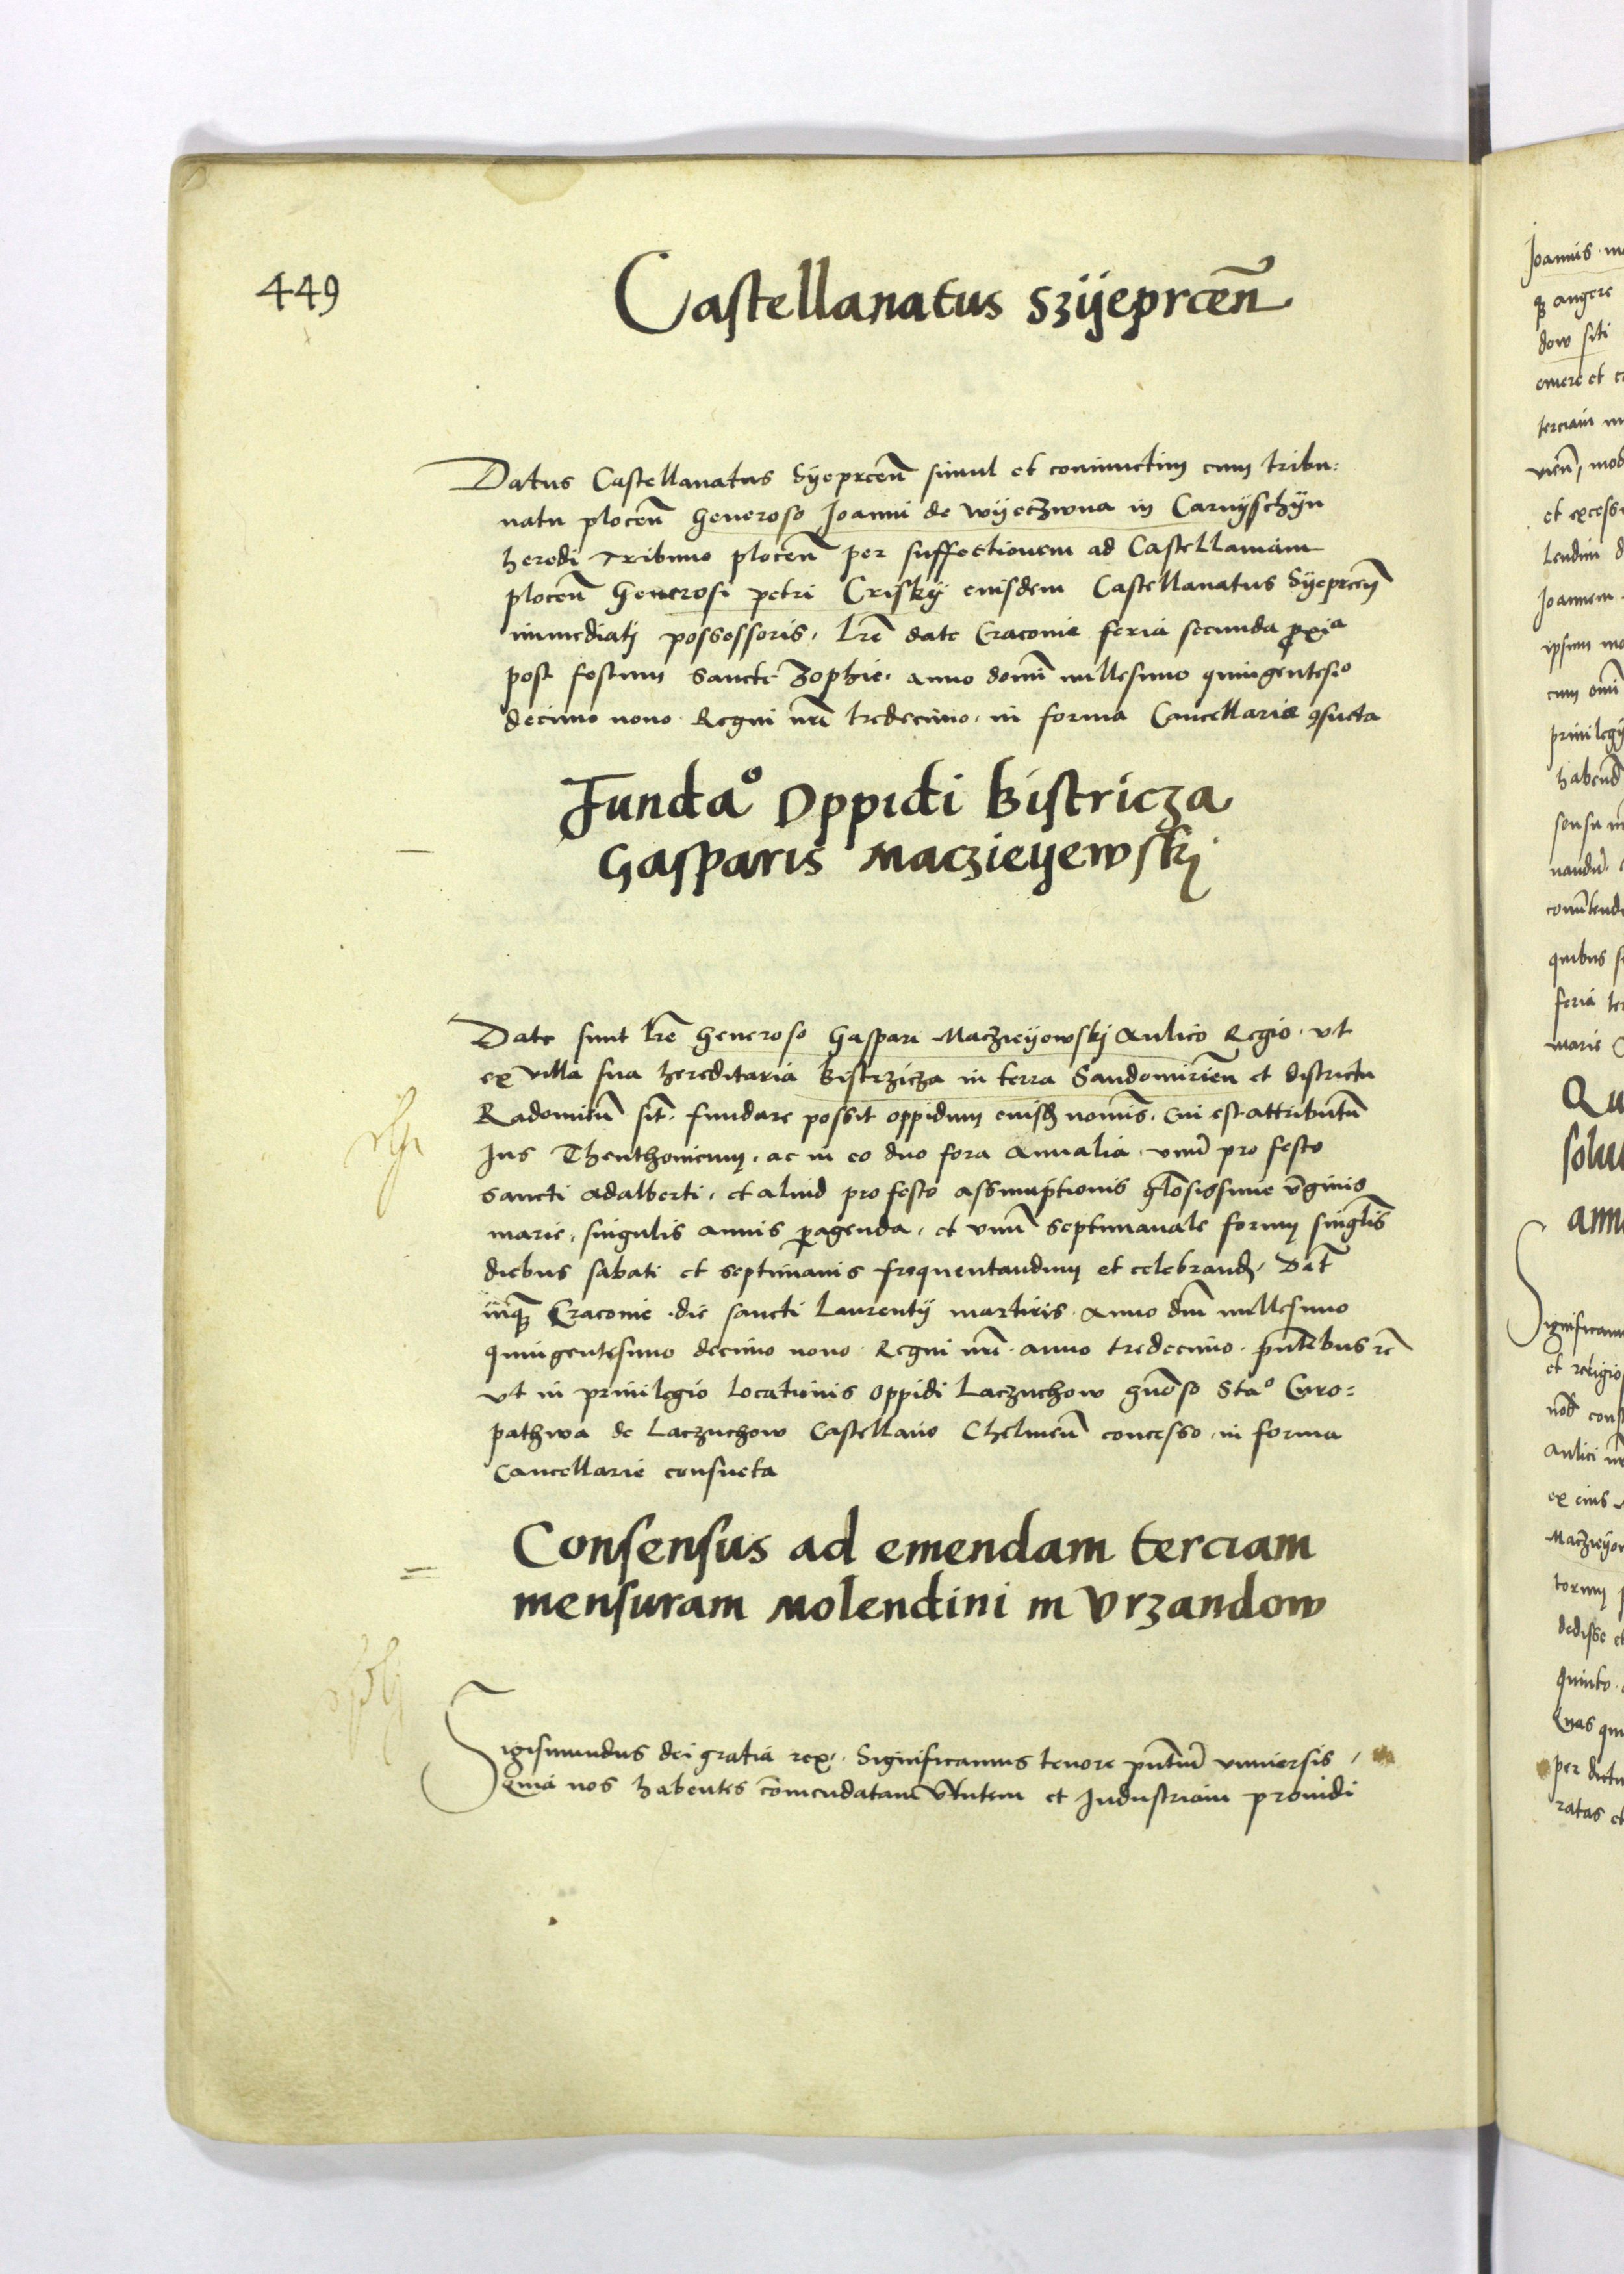 449
Castellanatus Szÿeprceñ
Datus Castellanatus Sÿeprceñ simul et coniunctim cum tribu:
natu ploceñ Generoso Joanni de Wÿeczwna in Carnÿschÿn
heredi Tribuno ploceñ per suffectionem ad Castellaniam
ploceñ Generosi petri Criskÿ eiusdem Castellanatus Sÿeprceñ
immediati possessoris. Lre date Cracovie feria secunda proxia
post festum Sancte Zophie. Anno domi millesimo quingentesio
decimo nono. Regni nri tredecimo. in forma Cancellarie consueta
Fundao Oppidi Bistricza
Gasparis Maczieyewskj
Date sunt lre Generoso Gaspari Maczieyowskj Aulico Regio. vt
ex villa sua hereditaria Bistrzicza in terra Sandomirień et districtu
Radomień sit. fundare possit oppidum eiusd nomis. cui est attributū
Jus Theuthonicum. ac in eo duo fora Annalia. vnū pro festo
sancti Adalberti. et aliud pro festo assumptionis glosissime vginis
marie. singulis annis peragenda. et vnū septimanale forum singlis
diebus sabati et septimanis frequentandum et celebrand. Dat
Cracovie. die sancti Laurentij martiris. Anno dni millesimo
quingentesimo decimo nono. Regni nri. anno tredecimo. pntibus rc
vt in privilegio locationis oppidi Laczuchow gnoso Stao Curo:
pathwa de Laczuchow Castellano Chelmeñ concesso. in forma
Cancellarie consueta
Consensus ad emendam terciam
mensuram Molendini in Vrzandow
Sigismundus dei gratia rex. Significamus tenore pntiū vniversis.
Quia nos habentes comendatam virtutem et Industriam providi
Joannis
augere
dow siti
emere et
terciam
et excess
Joannem
ipsum
cum omi
privilegi
habend
quibus
feria
marie
Qu
solu
ann
Significam
et religio
Aulici
ex eius
Maczieyow
dedisse
quinto
per dictu
ratas et